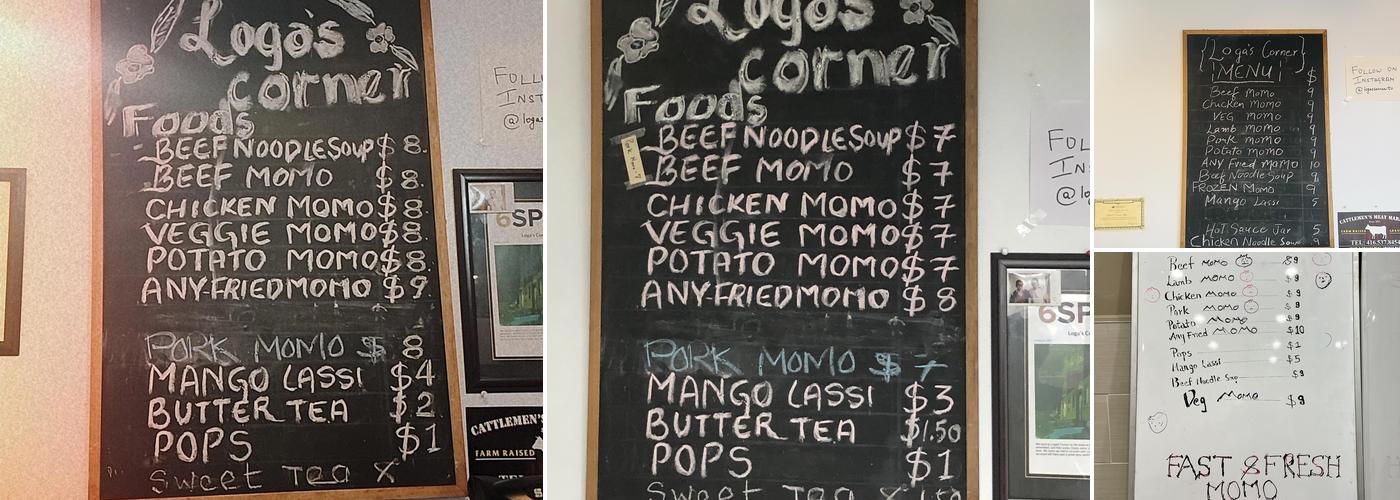 Loga's
corner
Foods
BEEF NOODLE SOUP $ 8.
BEEF MOMO $ 8.
CHICKEN MOMO $ 8.
VEGGIE MOMO $ 8.
POTATO MOMO $ 8.
ANY FRIED MOMO $ 9
PORK MOMO $ 8
MANGO LASSI $4
BUTTER TEA $2
POPS $1
Sweet Tea X
FOLL
INST
@logas
6SP
CATTLEMEN'S
FARM RAISED
Loga's
corner
Foods
BEEF NOODLE SOUP $ 7
BEEF MOMO $ 7
CHICKEN MOMO $ 7
VEGGIE MOMO $ 7
POTATO MOMO $ 7
ANY FRIED MOMO $ 8
PORK MOMO $ 7
MANGO LASSI $3
BUTTER TEA $1.50
POPS $1
Sweet Tea X 1.50
FOL
INS
@log
6SP
Loga's C
{Loga's Corner}
MENU $
Beef Momo 9
Chicken Momo 9
VEG MOMO 9
Lamb momo 9
Pork momo 9
Potato momo 9
ANY Fried MOMO 10
Beef Noodle Soup 9
FROZEN Momo 9
Mango Lassi 5
Hot Sauce Jar 5
Chicken Noodle Soup
FOLLOW ON
INSTAGRAM
CATTLEMEN'S MEAT MAR
FARM RAISED
TEL: 416.537.8454
Beef MOMO $9
Lamb MOMO $9
Chicken MOMO $9
Pork MOMO $9
Potato MOMO $9
Any Fried MOMO $10
Pops $1
Mango Lassi $5
Beef Noodle Soup $9
Veg Momo $9
FAST & FRESH
MOMO